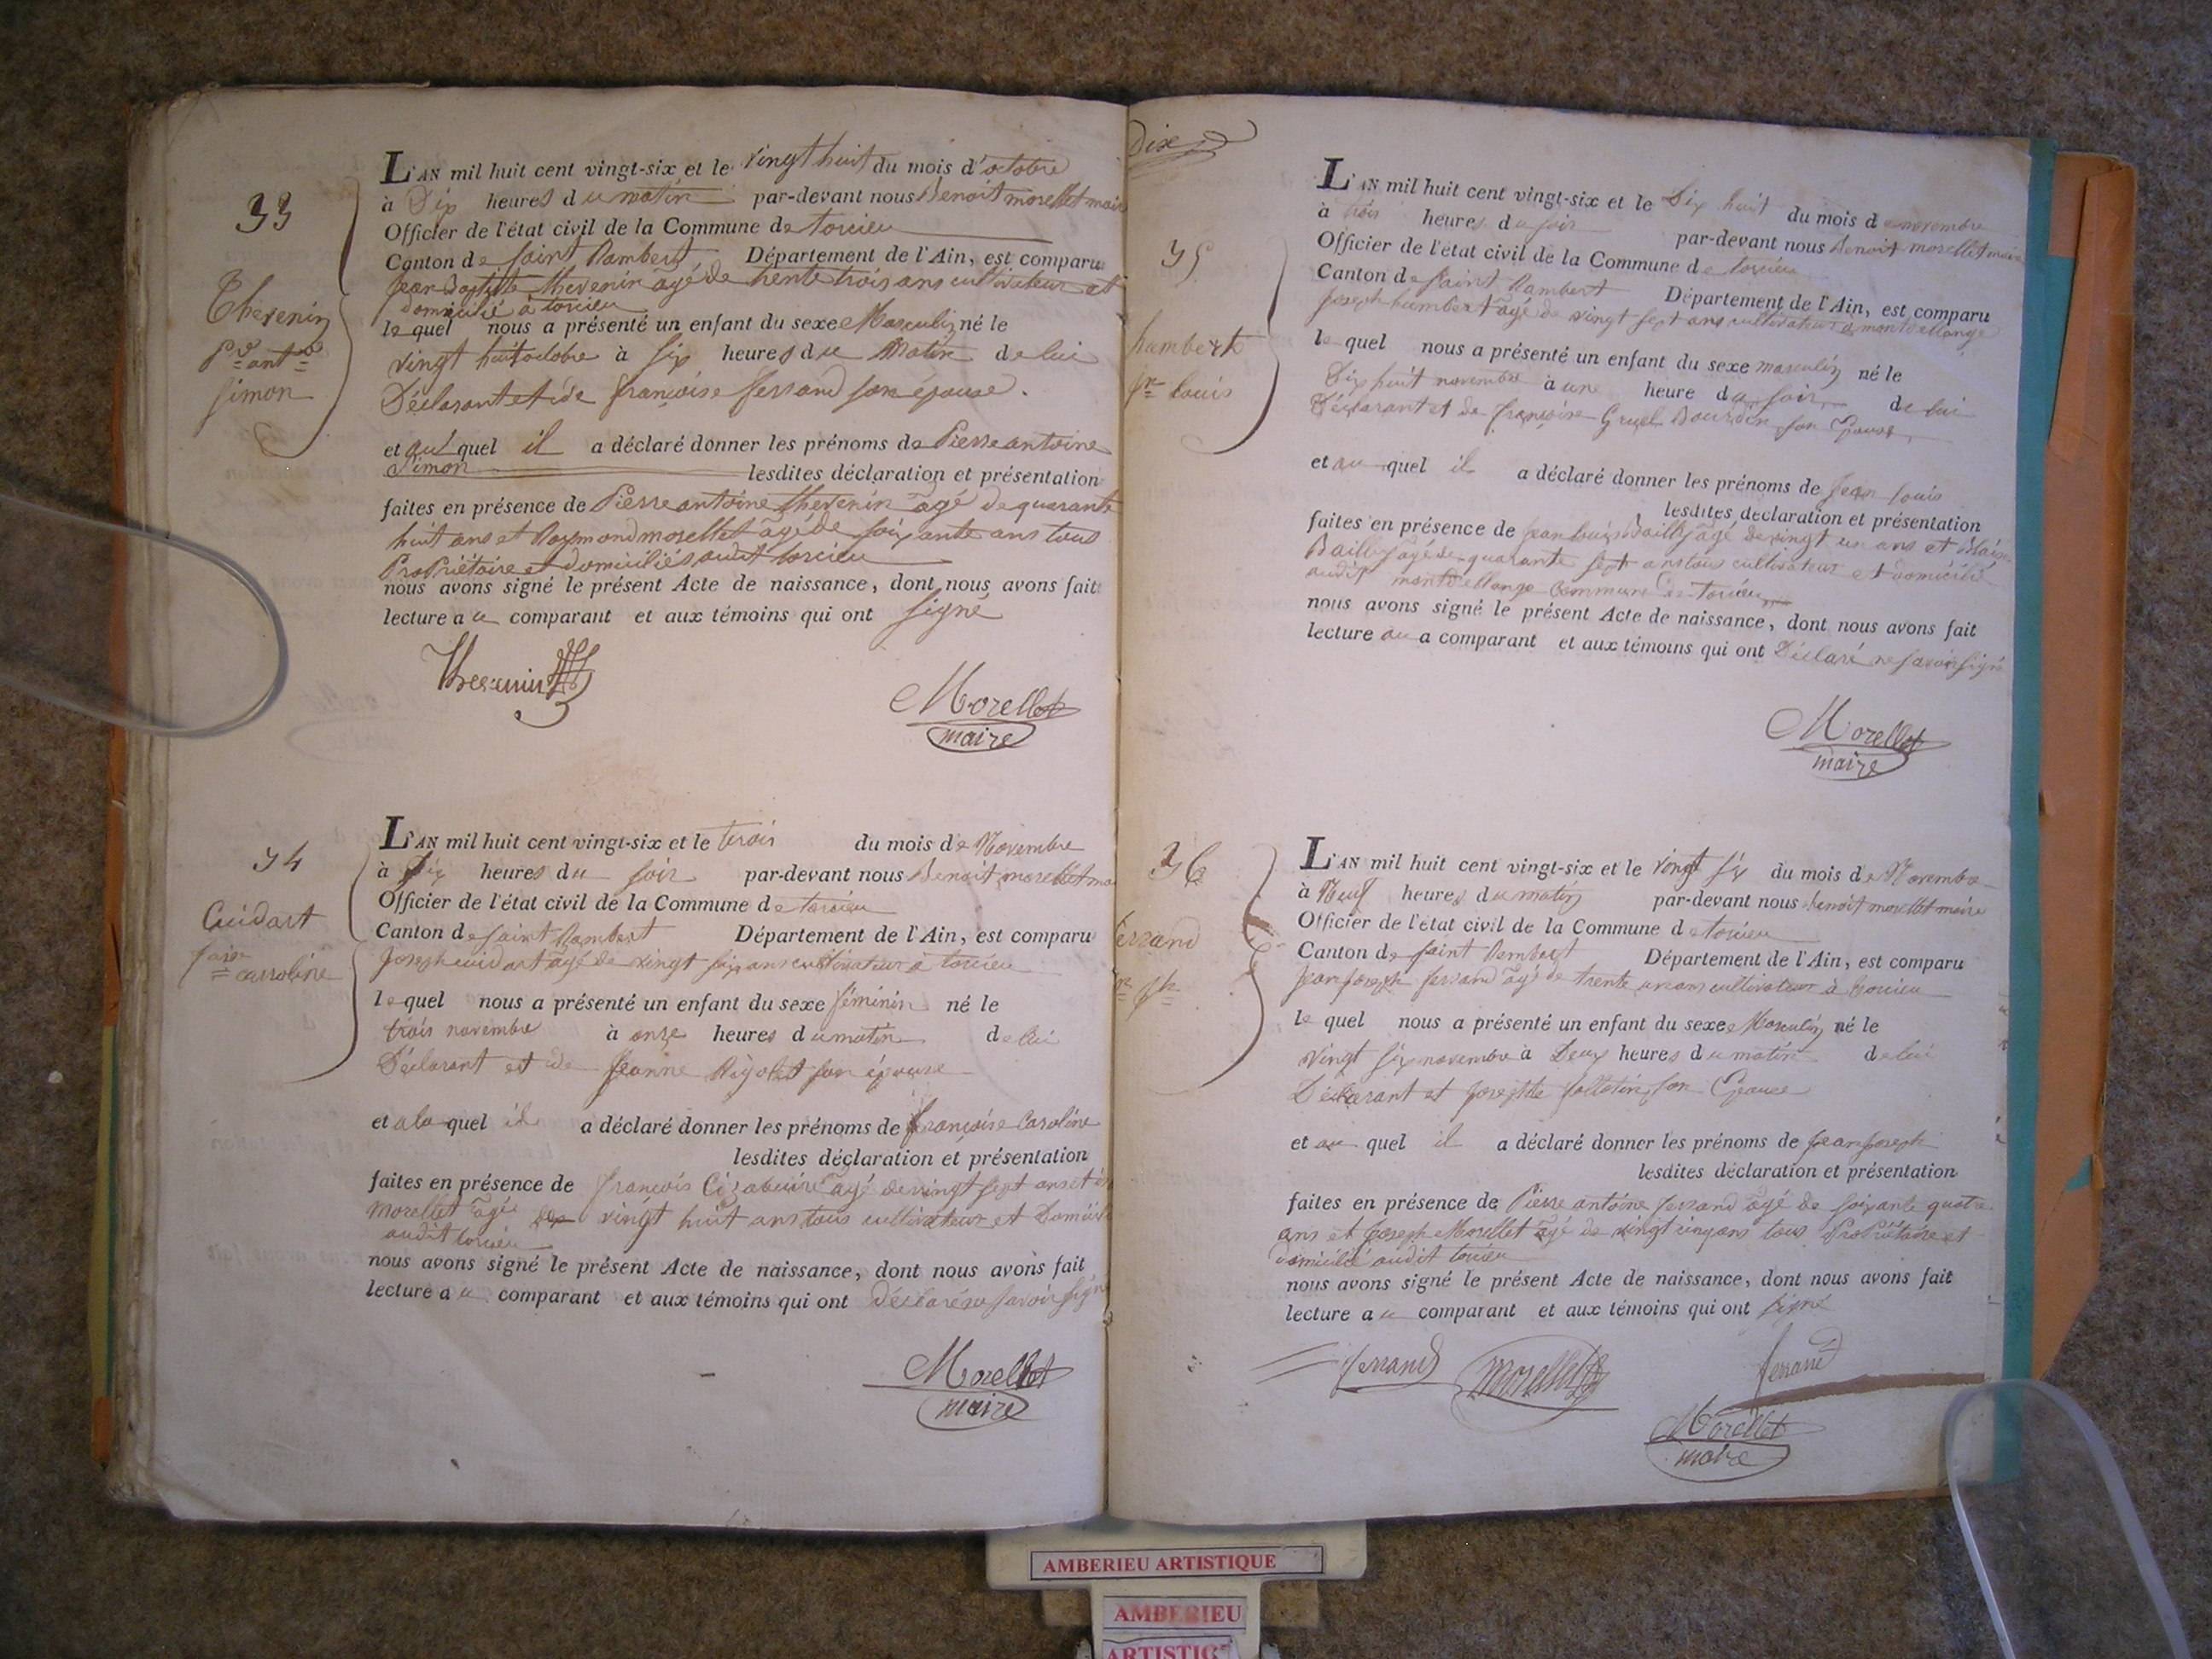 33
Thevenin
Pre antne
Simon
L'AN mil huit cent vingt-six et le vingt huit du mois d'octobre
à Dix heures du matin par-devant nous Benoit morellet maire
Officier de l'état civil de la Commune de torcieu
Canton de Saint Rambert Département de l'Ain, est comparu
Jean Baptiste thevenin agé de trente trois ans cultivateur et
domicilié à torcieu
lequel nous a présenté un enfant du sexe Masculin né le
vingt huit octobre à six heures du Matin de lui
Déclarant et de françoise ferrand son épouse.
et au quel il a déclaré donner les prénoms de Pierre antoine
Simon lesdites déclaration et présentation
faites en présence de Pierre antoine thevenin agé de quarante
huit ans et Raymond morellet agé de soixante ans tous
Propriétaire et domiciliés audit torcieu
nous avons signé le présent Acte de naissance, dont nous avons fait
lecture au comparant et aux témoins qui ont signé
Thevenin
Morellet
maire
34
Cuidart
caroline
L'AN mil huit cent vingt-six et le trois du mois de Novembre
à Six heures du soir par-devant nous Benoit morellet
Officier de l'état civil de la Commune de torcieu
Canton de Saint Rambert Département de l'Ain, est comparu
Joseph cuidart agé de vingt six ans cultivateur à torcieu
lequel nous a présenté un enfant du sexe féminin né le
trois novembre à onze heures du matin de lui
Déclarant et de Jeanne Rigollet son épouse
et a la quel il a déclaré donner les prénoms de françoise Caroline
lesdites déclaration et présentation
faites en présence de françois agé de vingt sept ans et
morellet agé de vingt huit ans tous cultivateur et Domicilié
audit torcieu
nous avons signé le présent Acte de naissance, dont nous avons fait
lecture au comparant et aux témoins qui ont déclaré ne savoir signé
Morellet
maire
Dix
35
humbert
Jn Louis
L'AN mil huit cent vingt-six et le Dix huit du mois de novembre
à trois heures du soir par-devant nous Benoit morellet maire
Officier de l'état civil de la Commune de torcieu
Canton de Saint Rambert Département de l'Ain, est comparu
Joseph humbert agé de vingt sept ans cultivateur à montdellange
lequel nous a présenté un enfant du sexe masculin né le
Dix huit novembre à une heure du soir de lui
Déclarant et de françoise Gruel Bourdin son Epouse
et au quel il a déclaré donner les prénoms de Jean Louis
lesdites déclaration et présentation
faites en présence de Jean Louis Bailly agé de vingt un ans et
Bailly agé de quarante sept ans tous cultivateur et domicilié
audit montdellange Commune de torcieu
nous avons signé le présent Acte de naissance, dont nous avons fait
lecture au a comparant et aux témoins qui ont Déclaré ne savoir signé
Morellet
maire
36
ferrand
L'AN mil huit cent vingt-six et le vingt six du mois de Novembre
à Neuf heures du matin par-devant nous benoit morellet maire
Officier de l'état civil de la Commune de torcieu
Canton de Saint Rambert Département de l'Ain, est comparu
Jean Joseph ferrand agé de trente un ans cultivateur à torcieu
lequel nous a présenté un enfant du sexe Masculin né le
vingt six novembre à Deux heures du matin de lui
Déclarant et Josephte son Epouse
et au quel il a déclaré donner les prénoms de Jean Joseph
lesdites déclaration et présentation
faites en présence de Pierre antoine ferrand agé de soixante quatre
ans et Joseph Morellet agé de vingt cinq ans tous Propriétaire et
domicilié audit torcieu
nous avons signé le présent Acte de naissance, dont nous avons fait
lecture au comparant et aux témoins qui ont signé
ferrand
Morellet
ferrand
Morellet
maire
AMBERIEU ARTISTIQUE
AMBERIEU